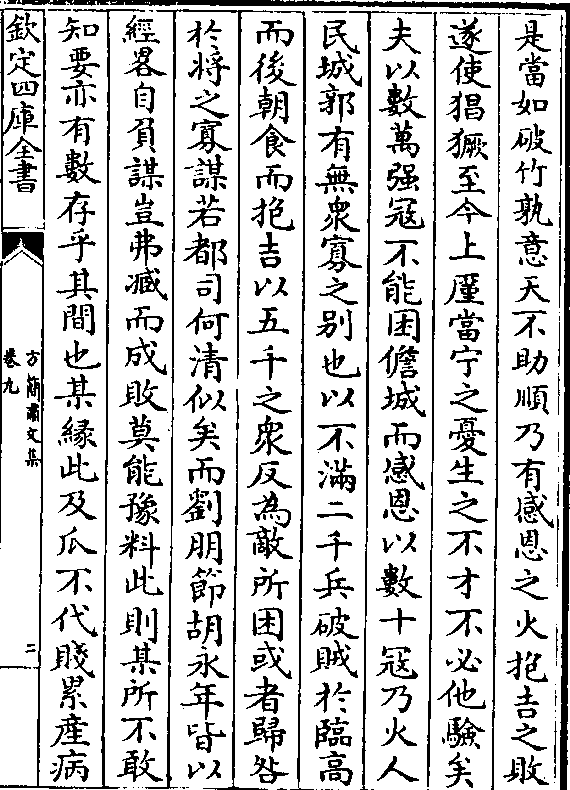 是當如破竹孰意天不助順乃有感恩之火抱吉之敗
遂使猖獗至今上厪當宁之憂生之不才不必他驗矣
夫以數萬强冦不能困儋城而感恩以數十冦乃火人
民城郭有無衆寡之别也以不滿二千兵破賊於臨髙
而後朝食而抱吉以五千之衆反為敵所困或者歸咎
於將之寡謀若都司何清似矣而劉朋節胡永年皆以
經畧自負謀豈弗臧而成敗莫能豫料此則某所不敢
知要亦有數存乎其間也某緣此及瓜不代賤累産病
欽定四庫全書
方簡肅文集
卷九
二